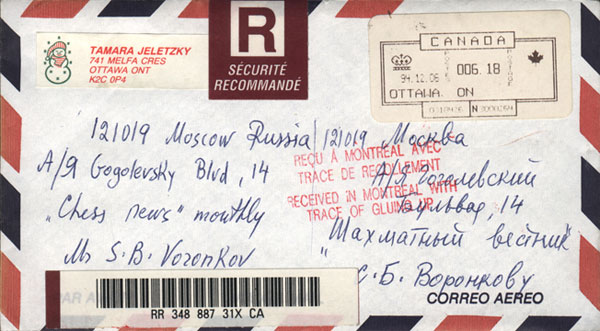 TAMARA JELETZKY
741 MELFA CRES
OTTAWA ONT
K2C 0P4
R
SÉCURITÉ
RECOMMANDÉ
CANADA
94.12.06
006.18
OTTAWA. ON
121019 Moscow Russia
А/Я Gogolevsky Blvd, 14
"Chess news" monthly
Mr S. B. Voronkov
121019 Москва
А/Я Гоголевский
Бульвар, 14
"Шахматный вестник"
С. Б. Воронкову
REÇU À MONTRÉAL AVEC
TRACE DE RECOLLEMENT
RECEIVED IN MONTREAL WITH
TRACE OF GLUING UP
RR 348 887 31X CA
CORREO AEREO